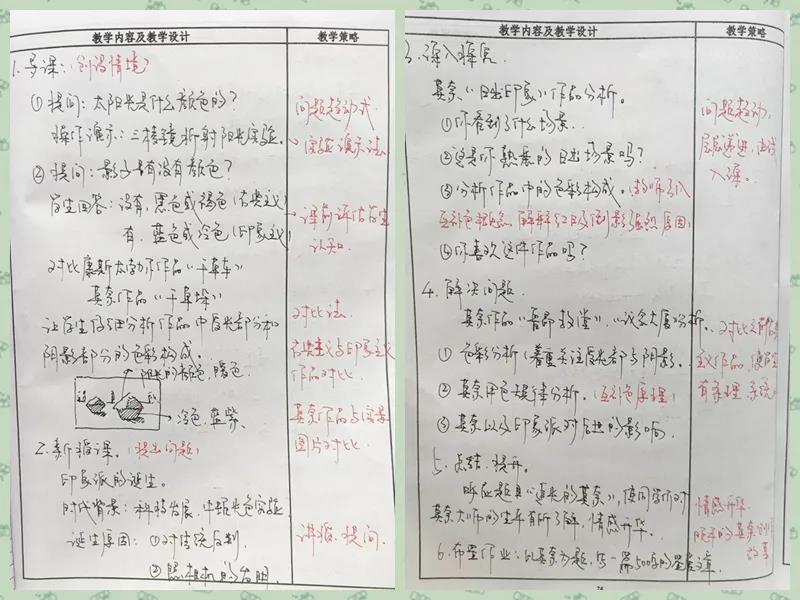 教学内容及教学设计
教学策略
1. 导课:(创设情境)
①提问:太阳光是什么颜色的?
操作演示:三棱镜折射阳光实验。
②提问:影子有没有颜色?
学生回答:没有,黑色或褐色(古典主义)
有,蓝色或冷色(印象主义)
对比康斯太勃尔作品《干草车》
莫奈作品《干草垛》
让学生仔细分析作品中受光部分和
阴影部分的色彩构成。
阳光的颜色,暖色
冷色,蓝紫、
2. 新授课。(提出问题)
印象派的诞生。
时代背景:科技发展,牛顿光色实验
诞生原因:①对传统反判
②照相机的发明
问题起动式
实验演示法
课前评估学生
认知。
对比法
古典主义与印象主义
作品对比
莫奈作品与实景
图片对比
讲授、提问
教学内容及教学设计
教学策略
3. 深入探究
莫奈《日出印象》作品分析。
①你看到了什么场景…
②这是你熟悉的日出场景吗?
③分析作品中的色彩构成。(教师引入
互补色概念,解释红日及倒影原因)
④你喜欢这件作品吗?
4. 解决问题
莫奈作品《鲁昂教堂》、《议会大厦》分析。
①色彩分析(着重关注受光部与阴影。
②莫奈用色规律分析。(互补色原理)
③莫奈以及印象派对后世的影响
5. 总结、提升。
呼应题目《追光的莫奈》,使同学们对
莫奈大师的生平有所了解,情感升华。
6. 布置作业:以莫奈为题,写一篇500字的鉴赏文章
问题起动,
层层递进,
入课。
对比
主义作品,使学生
有条理、系统
情感升华
的莫奈
故事